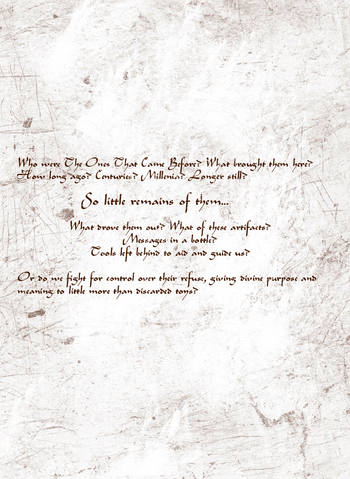 Who were The Ones That Came Before? What brought them here?
How long ago? Centuries? Millenia? Longer still?
So little remains of them...
What drove them out? What of these artifacts?
Messages in a bottle?
Tools left behind to aid and guide us?
Or do we fight for control over their refuse, giving divine purpose and
meaning to little more than discarded toys?